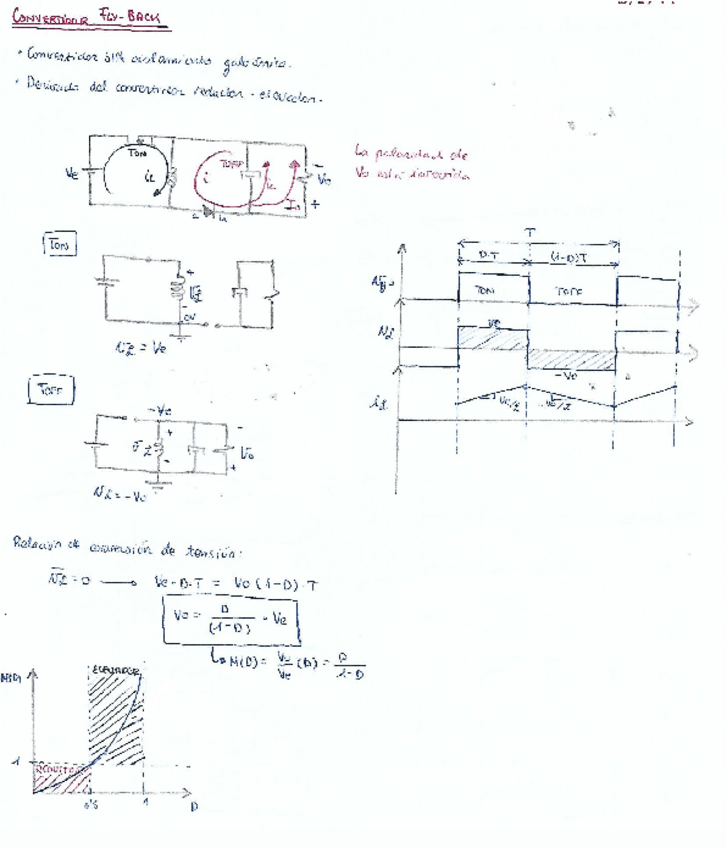 CONVERTIDOR FLY-BACK
• Convertidor sin aislamiento galvánico.
• Derivado del convertidor reductor-elevador.
Ve
TON
iL
i
TOFF
ic
Io
-
Vo
+
La polaridad de
Vo está invertida
TON
+
VL
-
0V
VL = Ve
T
D·T
(1-D)T
TON
TOFF
VL
Ve
-Vo
iL
Ve/L
-Vo/L
TOFF
-Vo
+
VL
-
-
Vo
+
VL = -Vo
Relación de conversión de tensión:
VL = 0 → Ve·D·T = Vo(1-D)·T
Vo = D/(1-D) · Ve
M(D) = Vo/Ve (D) = D/1-D
M(D)
ELEVADOR
1
REDUCTOR
0'5
1
D